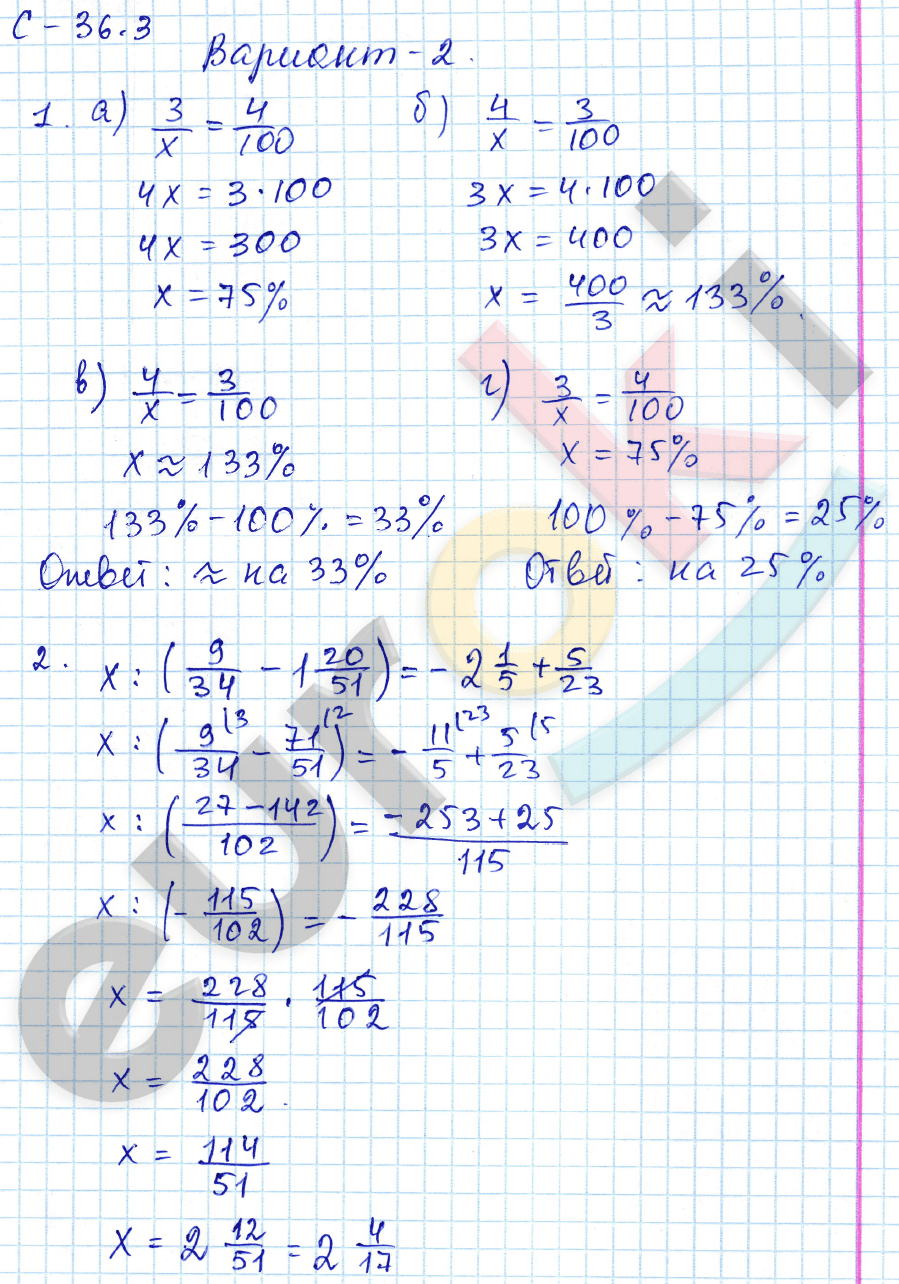 С - 36.3
Вариант - 2.
1. а) 3/x = 4/100
4x = 3·100
4x = 300
x = 75%
б) 4/x = 3/100
3x = 4·100
3x = 400
x = 400/3 ≈ 133%.
в) 4/x = 3/100
x ≈ 133%
133% - 100% = 33%
Ответ: ≈ на 33%
г) 3/x = 4/100
x = 75%
100% - 75% = 25%
Ответ: на 25%
2. x : (9/34 - 1 20/51) = - 2 1/5 + 5/23
x : (9/34 (3 - 71/51 (2) = - 11/5 (23 + 5/23 (5
x : ((27 - 142)/102) = (-253 + 25)/115
x : (- 115/102) = - 228/115
x = 228/115 · 115/102
x = 228/102.
x = 114/51
x = 2 12/51 = 2 4/17
euroki